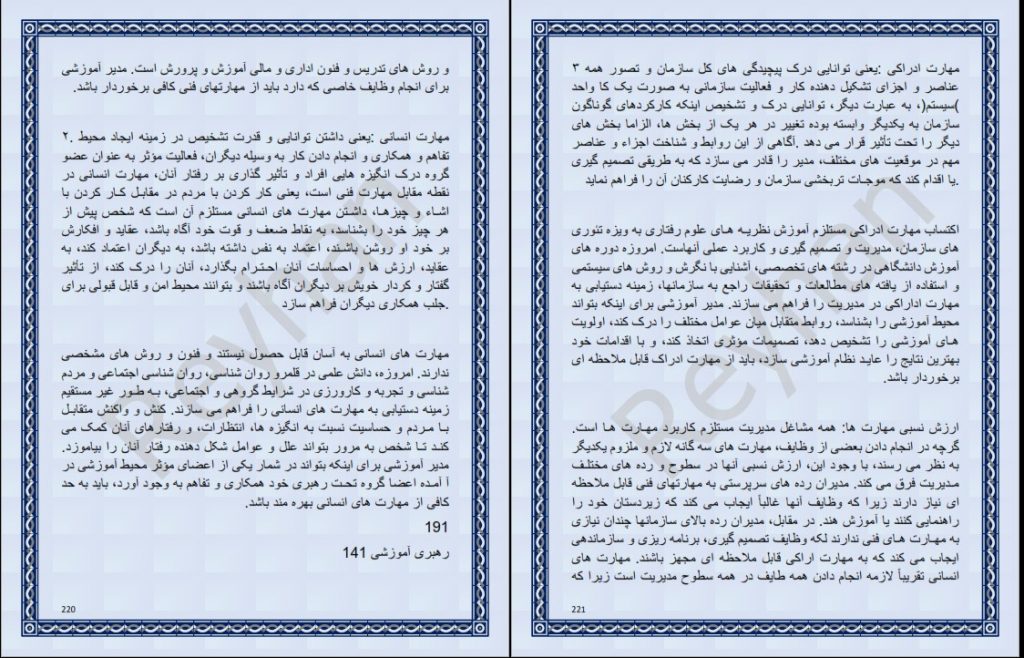 و روش های تدریس و فنون اداری و مالی آموزش و پرورش است. مدیر آموزشی
برای انجام وظایف خاصی که دارد باید از مهارتهای فنی کافی برخوردار باشد.
مهارت انسانی :یعنی داشتن توانایی و قدرت تشخیص در زمینه ایجاد محیط .۲
تفاهم و همکاری و انجام دادن کار به وسیله دیگران، فعالیت مؤثر به عنوان عضو
گروه درک انگیزه هایی افراد و تأثیر گذاری بر رفتار آنان، مهارت انسانی در
نقطه مقابل مهارت فنی است، یعنی کار کردن با مردم در مقابل کار کردن با
اشاء و چیزها، داشتن مهارت های انسانی مستلزم آن است که شخص پیش از
هر چیز خود را بشناسد، به نقاط ضعف و قوت خود آگاه باشد، عقاید و افکارش
بر خود او روشن باشند، اعتماد به نفس داشته باشد، به دیگران اعتماد کند، به
عقاید، ارزش ها و احساسات آنان احترام بگذارد، آنان را درک کند، از تأثیر
گفتار و کردار خویش بر دیگران آگاه باشند و بتوانند محیط امن و قابل قبولی برای
.جلب همکاری دیگران فراهم سازد
مهارت های انسانی به آسان قابل حصول نیستند و فنون و روش های مشخصی
ندارند. امروزه، دانش علمی در قلمرو روان شناسی، روان شناسی اجتماعی و مردم
شناسی و تجربه و کارورزی در شرایط گروهی و اجتماعی، به طور غیر مستقیم
زمینه دستیابی به مهارت های انسانی را فراهم می سازند. کنش و واکنش متقابل
با مردم و حساسیت نسبت به انگیزه ها، انتظارات، و رفتارهای آنان کمک می
کند تا شخص به مرور بتواند علل و عوامل شکل دهنده رفتار آنان را بیاموزد.
مدیر آموزشی برای اینکه بتواند در شمار یکی از اعضای مؤثر محیط آموزشی در
آ آمده اعضا گروه تحت رهبری خود همکاری و تفاهم به وجود آورد، باید به حد
کافی از مهارت های انسانی بهره مند باشد.
191
رهبری آموزشی 141
220
Reyhan
مهارت ادراکی :یعنی توانایی درک پیچیدگی های کل سازمان و تصور همه ۳
عناصر و اجزای تشکیل دهنده کار و فعالیت سازمانی به صورت یک کا واحد
)سیستم(، به عبارت دیگر، توانایی درک و تشخیص اینکه کارکردهای گوناگون
سازمان به یکدیگر وابسته بوده تغییر در هر یک از بخش ها، الزاما بخش های
دیگر را تحت تأثیر قرار می دهد .آگاهی از این روابط و شناخت اجزاء و عناصر
مهم در موقعیت های مختلف، مدیر را قادر می سازد که به طریقی تصمیم گیری
.یا اقدام کند که موجات تربخشی سازمان و رضایت کارکنان آن را فراهم نماید
اکتساب مهارت ادراکی مستلزم آموزش نظریه های علوم رفتاری به ویژه تئوری
های سازمان، مدیریت و تصمیم گیری و کاربرد عملی آنهاست. امروزه دوره های
آموزش دانشگاهی در رشته های تخصصی، آشنایی با نگرش و روش های سیستمی
و استفاده از یافته های مطالعات و تحقیقات راجع به سازمانها، زمینه دستیابی به
مهارت اداراکی در مدیریت را فراهم می سازند. مدیر آموزشی برای اینکه بتواند
محیط آموزشی را بشناسد، روابط متقابل میان عوامل مختلف را درک کند، اولویت
های آموزشی را تشخیص دهد، تصمیمات مؤثری اتخاذ کند، و با اقدامات خود
بهترین نتایج را عاید نظام آموزشی سازد، باید از مهارت ادراک قابل ملاحظه ای
برخوردار باشد.
ارزش نسبی مهارت ها: همه مشاغل مدیریت مستلزم کاربرد مهارت ها است.
گرچه در انجام دادن بعضی از وظایف، مهارت های سه گانه لازم و ملزوم یکدیگر
به نظر می رسند، با وجود این، ارزش نسبی آنها در سطوح و رده های مختلف
مدیریت فرق می کند. مدیران رده های سرپرستی به مهارتهای فنی قابل ملاحظه
ای نیاز دارند زیرا که وظایف آنها غالباً ایجاب می کند که زیردستان خود را
راهنمایی کنند یا آموزش هند. در مقابل، مدیران رده بالای سازمانها چندان نیازی
به مهارت های فنی ندارند لکه وظایف تصمیم گیری، برنامه ریزی و سازماندهی
ایجاب می کند که به مهارت اراکی قابل ملاحظه ای مجهز باشند. مهارت های
انسانی تقریباً لازمه انجام دادن همه طایف در همه سطوح مدیریت است زیرا که
221
Reyhan